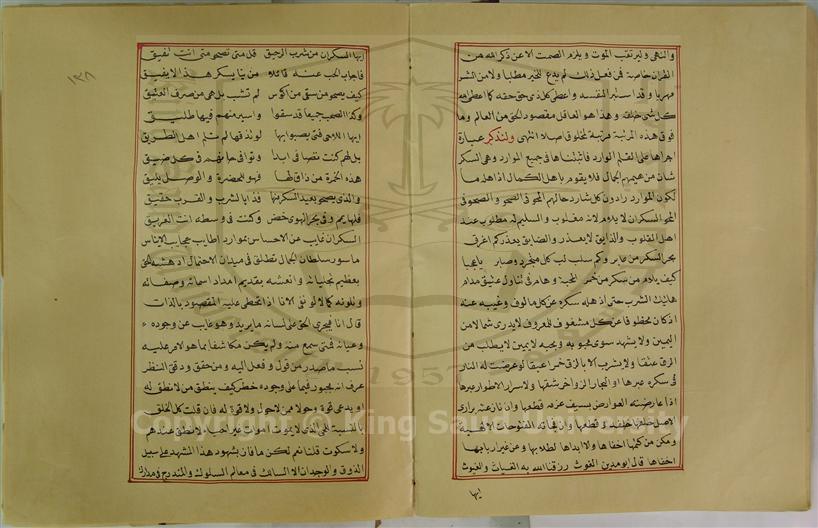 والنهى وليرتقب الموت ويلزم الصمت الا عن ذكر الله من
الطرق خاصة فمن فعل ذلك لم يدع للخير مطلبا ولا من الشر
مهربا وقد استبرأ لنفسه واعطى كل ذى حق حقه كما اعطى الله
كل شئ خلقه وهذا هو العاقل مقصود الحق من العالم وما
فوق هذه المرتبة مرتبة لمخلوق اصلا انتهى ولنذكر عبارة
اجراها على القلم الوارد فاثبتناها فى جميع الموارد وهى السكر
شان من هيمهم الجمال فلا يقوم باهل الكمال اذ اهل ما
لكون الموارد رادون كل شارد حالهم المحو فى الصحو والصحو فى
المحو السكران لا يلام لانه مغلوب والسليم له مطلوب عند
اهل القلوب والذايق لا يعذر والضايق يعذركم اغرق
بحر السكر من عابر وكم سلب لب كل متجرد وصابر يا عجبا
كيف يلام من سكر من خمر المحبة وهام فى تناول عتيق مدام
هاتيك الشرب حتى اذهله سكره عن كل مالوف وغيبه عنه
اذ كان مخطوفا عن كل مشغوف للمعروف لا يدرى شمالا من
اليمين ولا يشهد سوى محبوبه ويحبه لا يمين لا يطلب من
الرق عتقا ولا يشرب الا بالزق خمرا عبقا لو عرضت له النار
فى سكره عبرها او البحار الزواخر شقها ولاسرار الاطوار عبرها
اذا عارضته العوارض بسيف عزمه قطعها وان نازعته برارى
لاهل خلفها خلفه وقطعها وان فاتته الفتوحات الالهية
ومكن من كتمها اخفاها ولا ابداها لطلابها وعن غير اربابها
اخفاها قال ابو مدين الغوث رزقنا الله به الغياث والغوث
ايها
١٣٨
ايها السكران من شرب الرحيق قل متى تصحو متى انت تفيق
فاجاب الحب عنه قائلا من بنا يسكر هذا لا يفيق
كيف يصحو من سقى من اكؤس لم تشب بل هى من صرف العتيق
وكذا الصحب جميعا قد سقوا واسير منهم فيها طليق
ايها اللاحى فتى يصبو بها لو تذقها لم تلم اهل الطريق
بل لهم كنت نصافى ابدا وتوافى حانهم فى كل ضيق
هذه الخمرة من ذاق لها فهو للحضرة والوصل يليق
والذى يصحو بعيد السكر منها فذا بالشرب والقرب حقيق
فلها يمم وفى بحر الهوى خض وكنت فى وسطه انت الغريق
السكران غايب عن الاحساس بموارد اطايب عجايب الايناس
ماسور سلطان الجمال تطلق فى ميدان الاحتمال ادهشه الحق
بعظيم تجلياته وانعشه بقديم امداد اسمائه وصفاته
وتلونه كمالا لو نفى الانا اذ انحطى عليه المقصود بالذات
قال انا فيجرى الحق على لسانه ما يريد وهو غايب عن وجوده
وعيانه فمتى سمع منه ولم يكن مكاشفا بما هو لامر عليه
نسب ما صدر من قول وفعل اليه ومن حقق ودقق النظر
عرف انه مجبور فيما على وجوده خطر كيف ينطق من لا نطق له
او يدعى قوة وحولا من لا حول ولا قوة له فان قلت كل الخلق
بالنسبة للحى الذى لا يموت اموات غير احياء لا نطق عندهم
ولا سكوت قلنا نعم لكن ما فان بشهود هذا المشهد على سبيل
الذوق والوجدان الا السالك فى معالم السلوك والمندرج فى مدارك